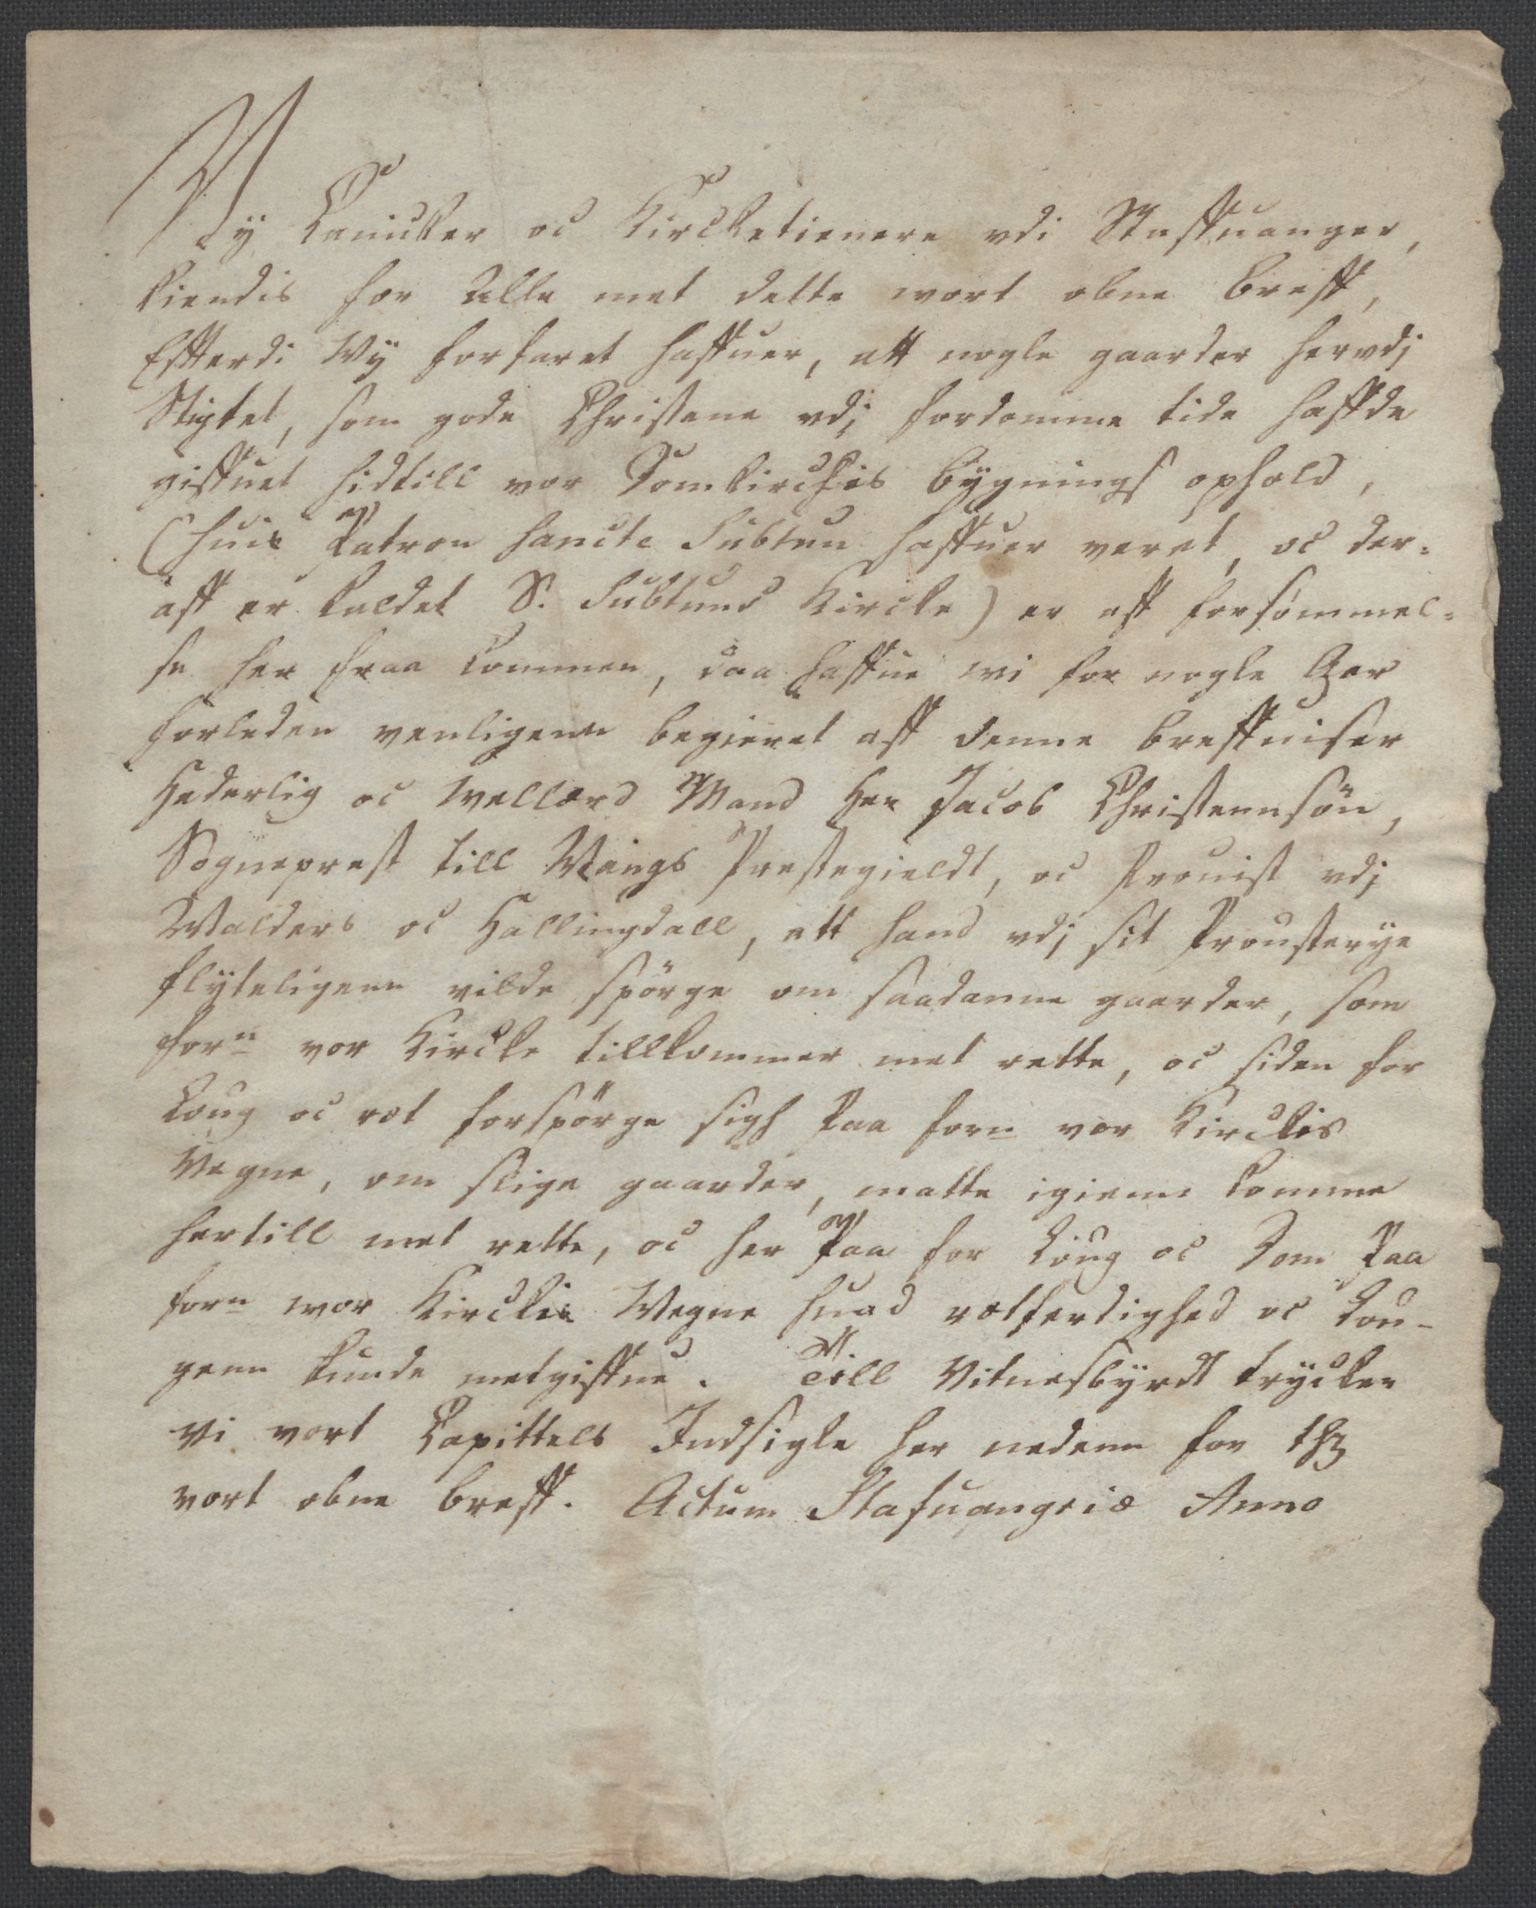 Wy Canicker oc Kircketienere vdi Staffuanger,
kiendis for Alle met dette wort obne breff,
Efterdi Wÿ forfaret haffuer, att nogle gaarder hervdj
Stigtet, som gode Christene vdj fordomme tide haffde
giffuet hidtill vor Domkirckis bygnings ophold,
(huis Patron Sancte Subtun haffuer veret, oc der-
aff er kaldet S. Subtuns Kircke) er aff forsömmel-
se her fraa kommen, daa haffue wi for nogle Aar
forleden venligenn begieret aff denne breffuiser
Hederlig oc wellærd Mand Her Jacob Christennsön,
Sogneprest till Wangs Prestegieldt, oc Prouist vdj
Walders oc Hallingdall, att hand vdj sit Prousterye
flyteligenn vilde spörge om saadanne gaarder, som
forn vor Kircke tillkommer met rette, oc siden for
Loug oc ret forspörge sigh Paa forn vor Kirckis
Vegne, om slige gaarder, motte igienn komme
hertill met rette, oc her Paa for Loug oc Dom Paa
forn wor Kirckis Wegne huad retferdighed oc Lou-
genn kunde metgiffue. Till Vitnesbyrdt trycker
Vi vort Capittels Indsigle her nedenn for thz
vort obne breff. Actum Stafuangriæ Anno